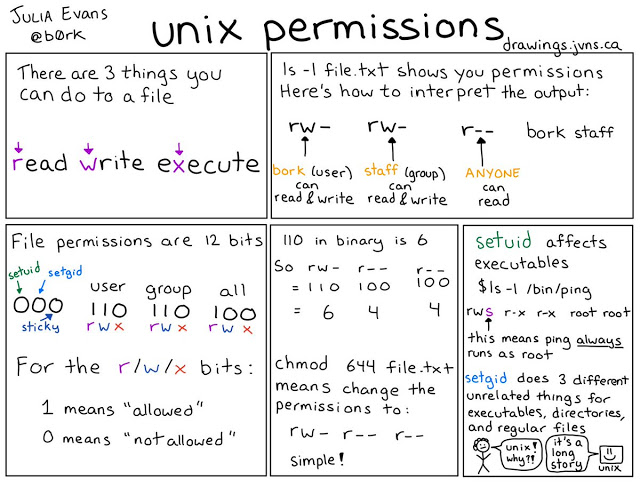 JULIA EVANS
@b0rk
unix permissions
drawings.jvns.ca
There are 3 things you
can do to a file
read write execute
ls -l file.txt shows you permissions
Here's how to interpret the output:
rw- rw- r-- bork staff
bork (user) staff (group) ANYONE
can can can
read & write read & write read
File permissions are 12 bits
setuid setgid
user group all
000 110 110 100
sticky rwx rwx rwx
For the r/w/x bits:
1 means "allowed"
0 means "not allowed"
110 in binary is 6
So rw- r-- r--
= 110 100 100
= 6 4 4
chmod 644 file.txt
means change the
permissions to:
rw- r-- r--
simple!
setuid affects
executables
$ls -l /bin/ping
rws r-x r-x root root
this means ping always
runs as root
setgid does 3 different
unrelated things for
executables, directories,
and regular files
unix!
why??
it's a
long
story
unix